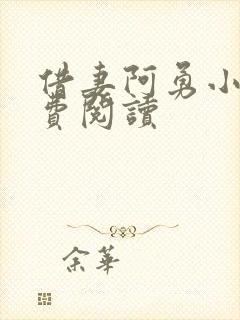 借妻阿勇小
費閱讀
余華